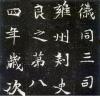 儀同三司
雍州刺史
良之第八
四年歲次